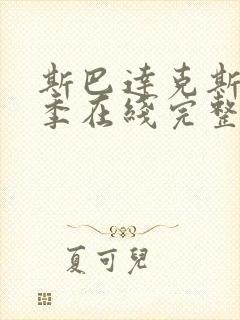 斯巴達克斯
季在綫完整
夏可兒